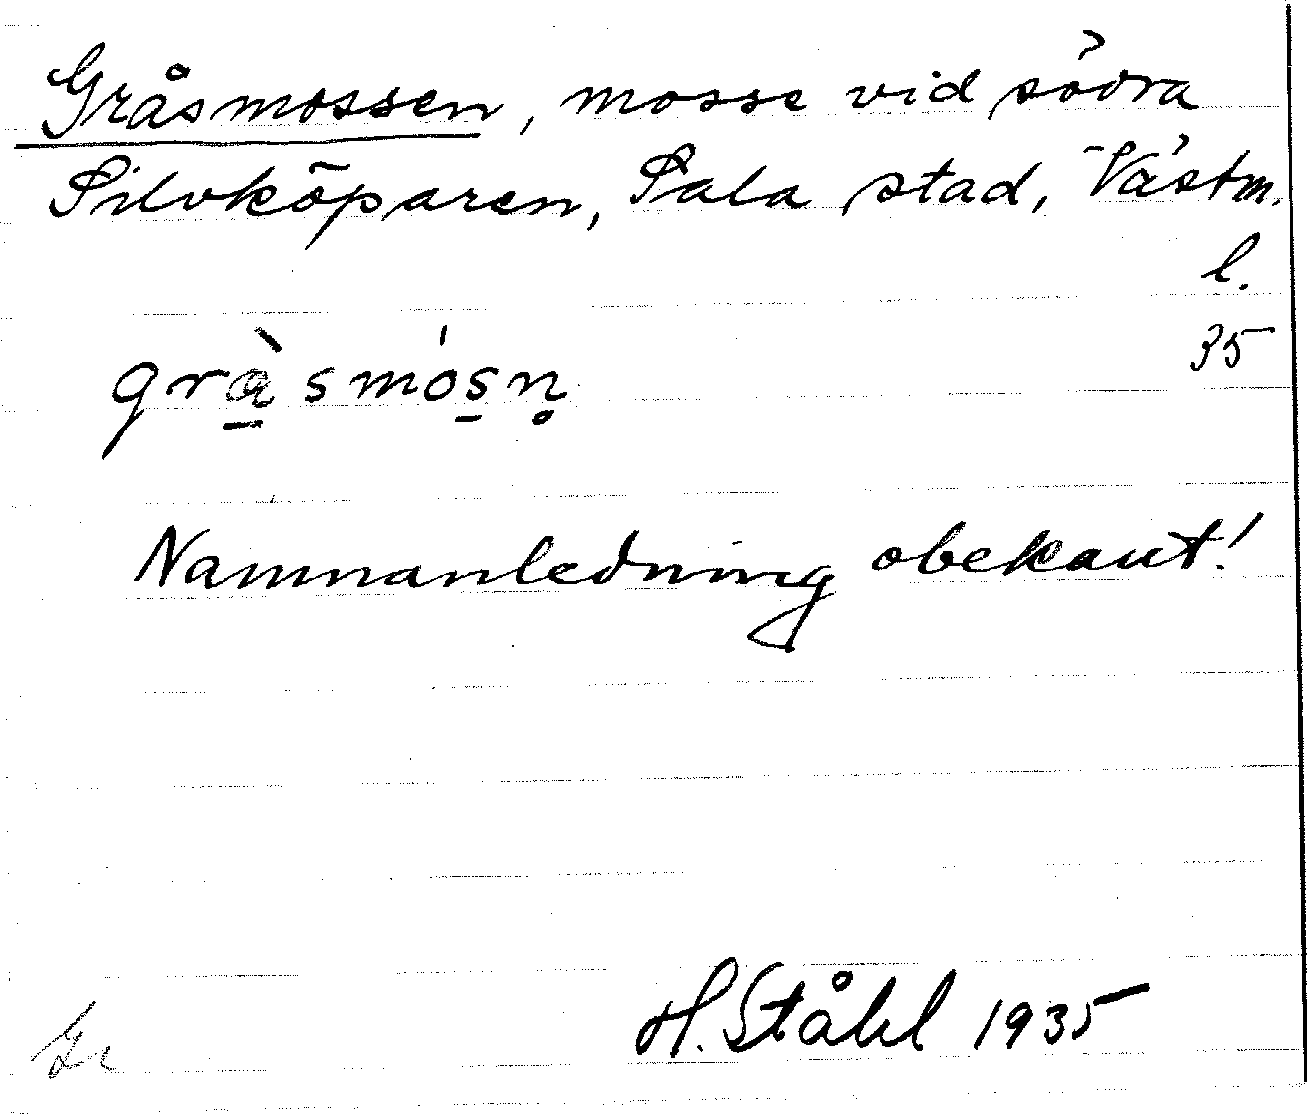 Gråsmossen, mosse vid södra
Silvköparen, Sala stad, Västm.
l.
35
grà̱smós̱n̥
Namnanledning obekant!
H. Ståhl 1935